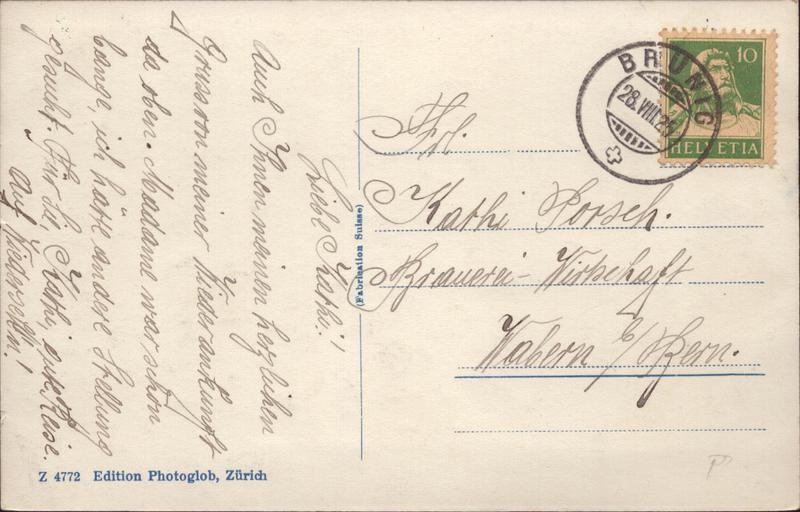 Liebe Kathi!
Auch Ihnen meinen herzlichen
Gruss von meiner Wiederankunft
da oben. Madame war schon
bange, ich hätte andere Stellung
gesucht. Für Sie, Kathi, gute Reise.
Auf Wiedersehn!
(Fabrication Suisse)
Z 4772 Edition Photoglob, Zürich
BRÜNIG
28.VIII.
10
HELVETIA
Frl.
Kathi Porsch.
Brauerei-Wirtschaft
Wabern b/Bern.